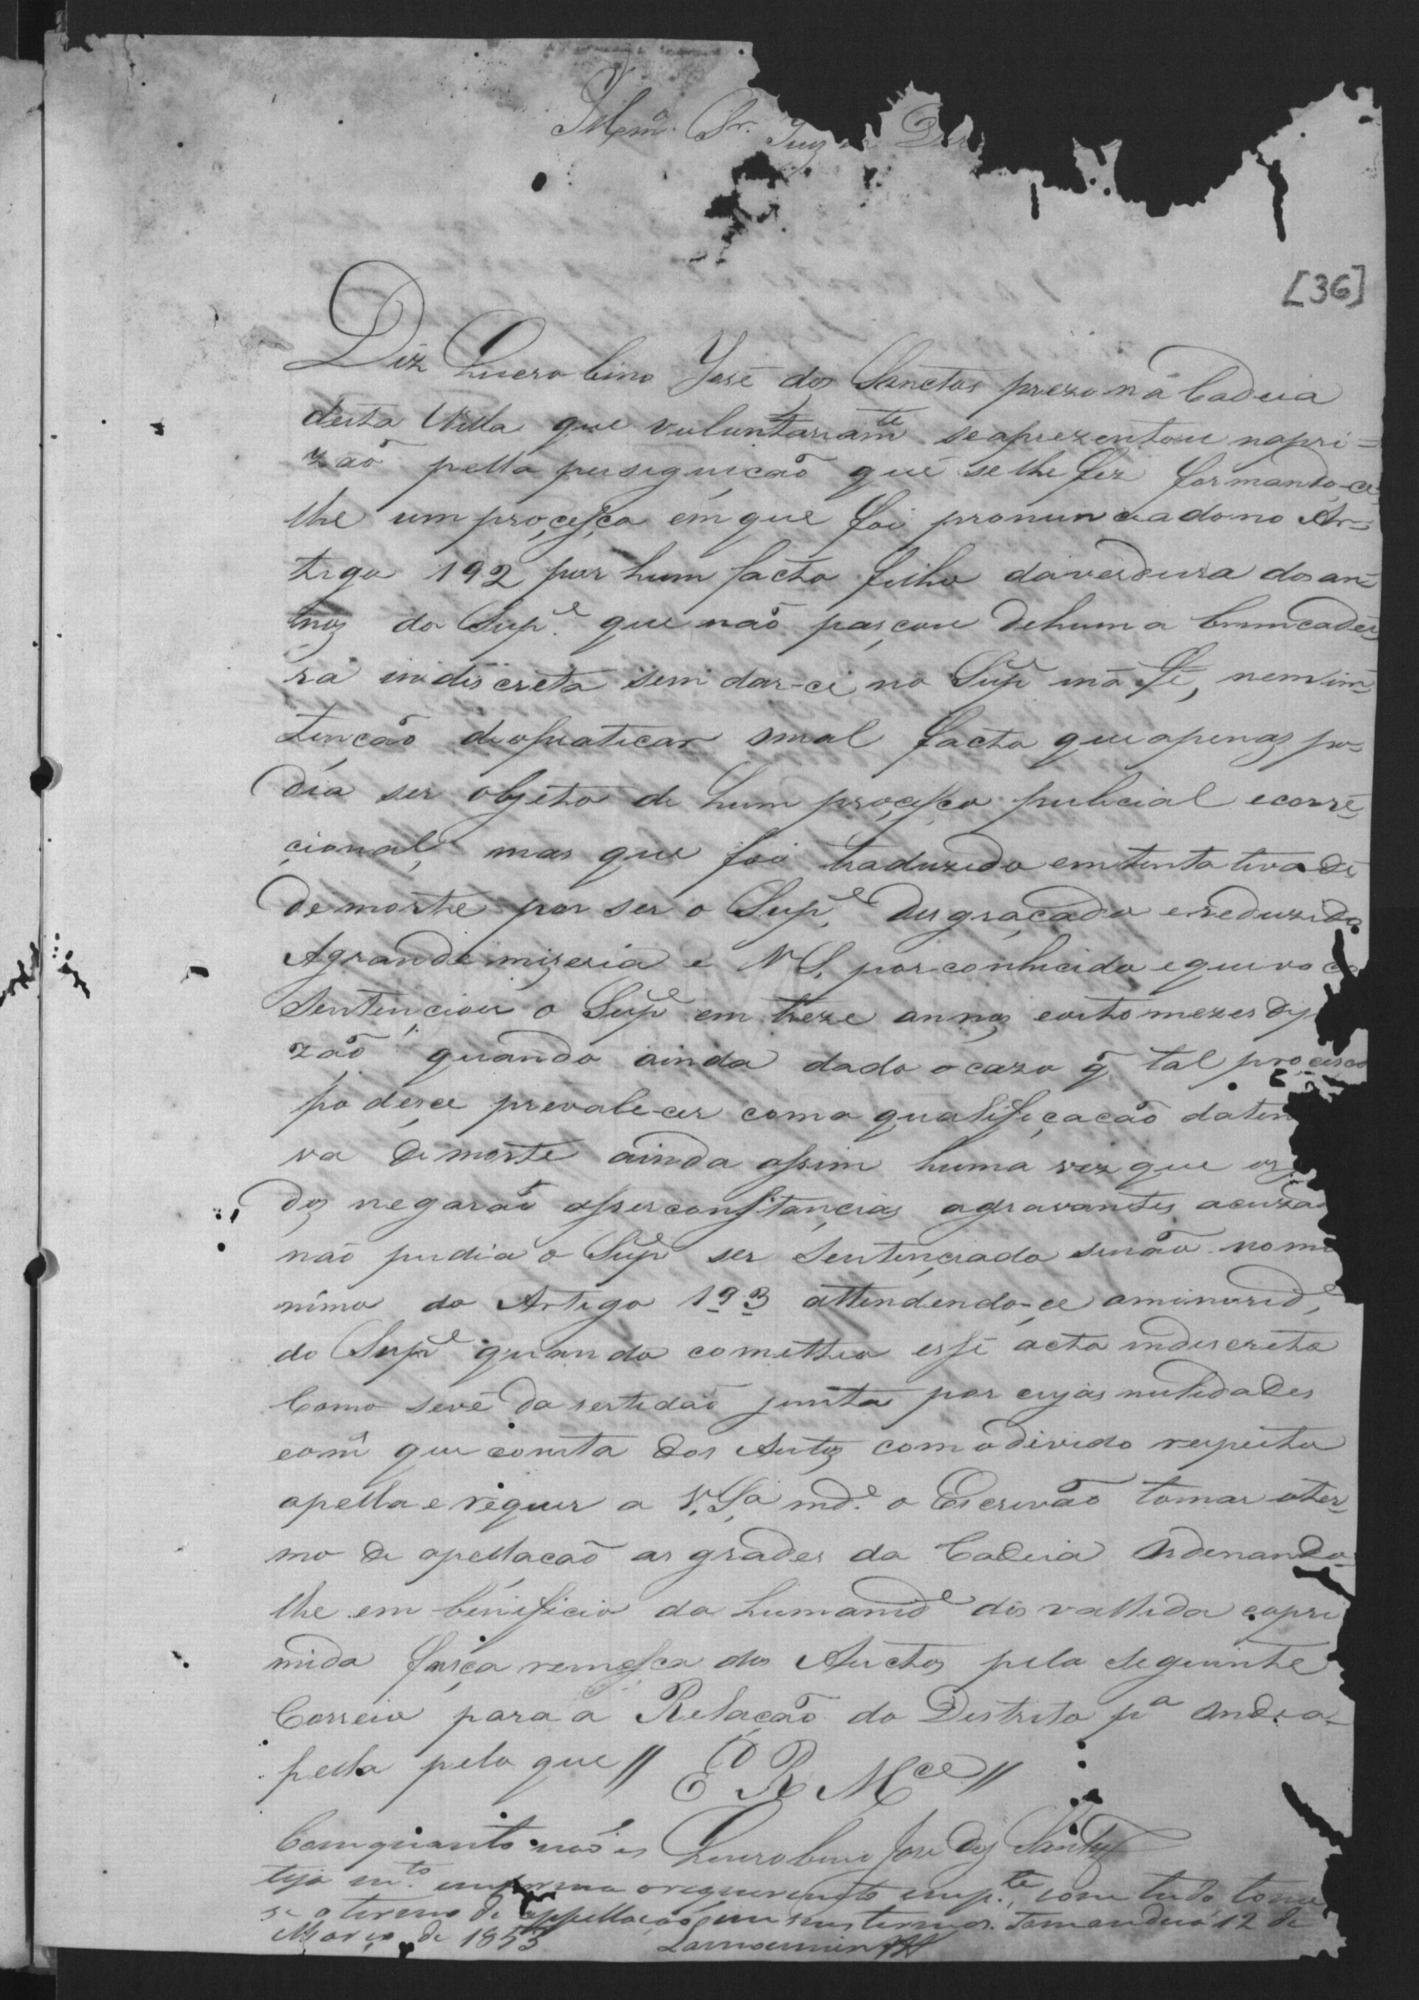 Illmo. Sr. Juiz de Dir
[36]
Diz Querobino José dos Sanctos prezo na Cadeia
desta Villa que voluntariamte se aprezentou napri=
zaõ pella perseguicaõ que selhe fez formando-ce
lhe um proçeſço em que foi pronunciadono Ar=
tigo 192 por hum facto filho daverdura dosan=
nos do Supe. que naõ pasçou dehuma brincadei
ra indiscreta sem dar-ce no Supe má fé, nem im=
tençaõ de opraticar mal facto que apenas po=
dia ser objeto de hum proçeſço pulicial ecorre=
çional, mas que foi traduzido emtentativa de
de morte por ser o Supe. desgraçado ereduzido
Agrande mizeria e V S. por conhicido equivoco
Sentençiou o Supe em treze annos eoito mezes de
zaõ quando ainda dado o cazo q̃ tal proçesco
podesce prevale-cer como qualificaçaõ daten
va de morte ainda aſsim huma vez que os
dos negaraõ asserconſtançias agravantes acuza
não pudia o Supe ser Sentençiado senão no me
nimo do Artigo 193 attendendo-ce aminoride,
do Supe quando cometteo eſse acto indiscreto
Como sevê da sertidaõ junta por cujas nulidades
com que consta dos Autos com odivido respeito
apella e requer a V.Sa. mde. o Escrivaõ tomar oter=
mo de apellacaõ as grades da Cadeia Ordenando
lhe em beneficio da humanide disvallida eopri
mida façca remeſça dos Auctos pelo seguinte
Correio para a Relaçaõ do Destrito pa onde a=
pella pelo que // E R Mce //
Comquanto não es Querobino Jose dos Santos
teja mto. em forma orequerimento comtudo tome
se o termo de appellação em seus termos. Tamanduá 12 de
Março de 1853